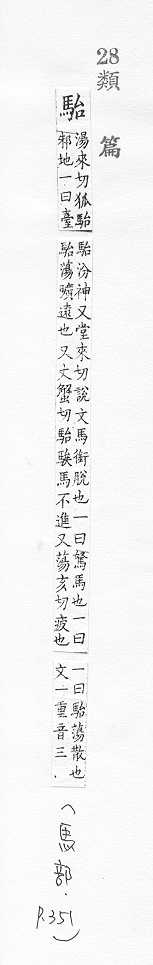 28
類篇
駘
湯來切狐駘
邾地一曰臺
駘汾神又堂來切說文馬銜脫也一曰駑馬也一曰
駘蕩曠遠也又丈蟹切駘騃馬不進又蕩亥切疲也
一曰駘蕩散也
文一重音三.
(馬部.
P.351)